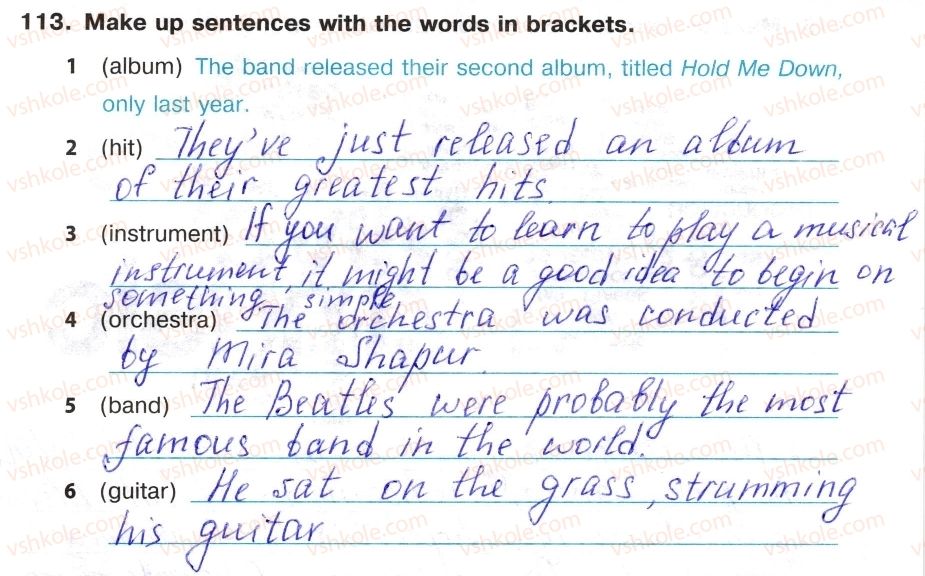 113. Make up sentences with the words in brackets.
1 (album) The band released their second album, titled Hold Me Down,
only last year.
2 (hit) They've just released an album
of their greatest hits.
3 (instrument) If you want to learn to play a musical
instrument, it might be a good idea to begin on
something simple
4 (orchestra) The orchestra was conducted
by Mira Shapur.
5 (band) The Beatles were probably the most
famous band in the world.
6 (guitar) He sat on the grass, strumming
his guitar